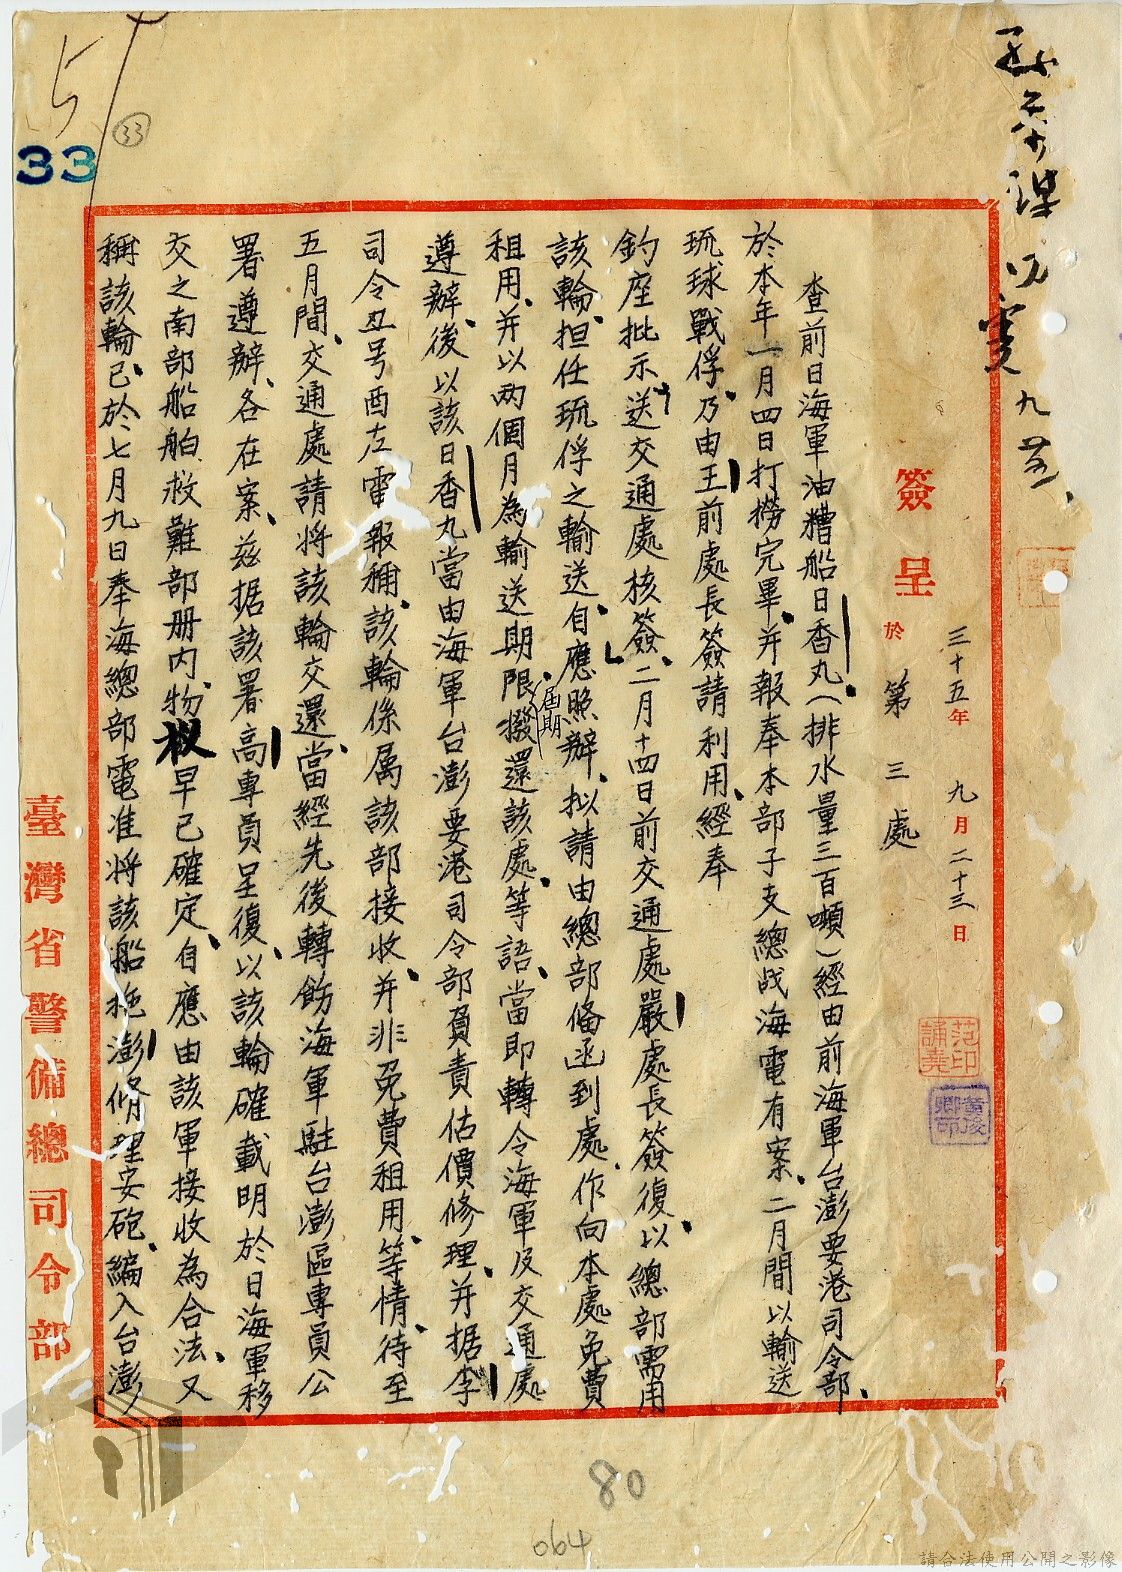 簽呈
三十五年九月二十三日
於第三處
查前日海軍油糟船日香丸(排水量三百噸)經由前海軍台澎要港司令部、
於本年一月四日打撈完畢、并報奉本部子支總战海電有案、二月間以輸送
琉球戰俘、乃由王前處長簽請利用、經奉
鈞座批示送交通處核簽、二月十四日前交通處嚴處長簽復、以總部需用
該輪、担任琉俘之輸送、自應照辦、拟請由總部俻函到處、作向本處免費
租用、并以两個月為輸送期限、屆期撥還該處、等語、當即轉令海軍及交通處
遵辦、後以該日香丸當由海軍台澎要港司令部負責估價修理、并据李
司令丑号酉左電報稱、該輪係属該部接收、并非免費租用、等情、待至
五月間、交通處請将該輪交還、當經先後轉飭海軍駐台澎區專員公
署遵辦、各在案、茲据該署高專員呈復、以該輪確載明於日海軍移
交之南部船舶救難部册内、物权早已確定、自應由該軍接收為合法、又
稱該輪、已於七月九日奉海總部電准将該船拖澎修理安砲、編入台澎
臺灣省警備總司令部
范誦堯印
33
33
5
80
064
請合法使用公開之影像